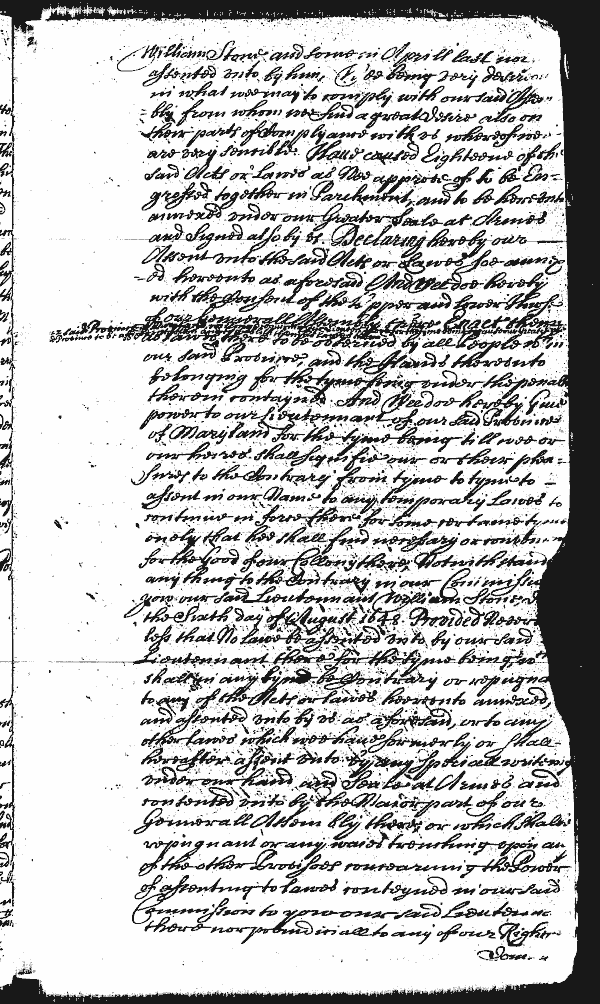 William Stone, and some in Aprill last not
assented vnto by him, Wee being very desirou
in what wee may to comply with our said Assem
bly from whom wee find a great desire also on
their parts of Complyance with vs whereof wee
are very sencible. Haue caused Eighteene of the
said Acts or Lawes as Wee approve of to be En-
grossed together in Parchment, and to be hereunto
annexed vnder our Greater Seale at Armes
and Signed also by vs. Declaring hereby our
Assent vnto the said Acts or Lawes soe annex
ed hereunto as aforesaid And Wee doe hereby
with the Consent of the Vpper and Lower Howse
of our Generall Assembly there Enact them
as Lawes there to be observed by all People in
our said Province, and the Islands thereunto
belonging for the tyme being vnder the penalt
therein contayned. And Wee doe hereby Giue
power to our Lieutennant of our said Province
of Maryland for the tyme being till wee or
our heires shall signifie our or their plea-
sures to the Contrary from tyme to tyme to
assent in our Name to any temporary Lawes to
continue in force there for some certaine tyme
onely that hee shall find necessary or convenien
for the Good of our Collony there, Notwithstand
any thing to the Contrary in our Commission
you our said Lieutennant William Stone,
the Sixth day of August 1648. Provided Never
less that No lawe be assented vnto by our said
Lieutennant there for the tyme being,
shall in any kynd be Contrary or repugna
to any of the Acts or lawes heerunto annexed,
and assented vnto by vs as aforesaid, or to any
other lawes which wee haue formerly or shall
hereafter assent vnto by any speciall writeing
vnder our hand and Seale at Armes and
contented vnto by the Maior part of our
Generall Assembly there, or which shalbe
repugnant or any waies trenching vpon any
of the other Provisoes concearning the Power
of assenting to lawes conteyned in our said
Commission to yow our said Lieutenn
there nor preiudiciall to any of our Rights